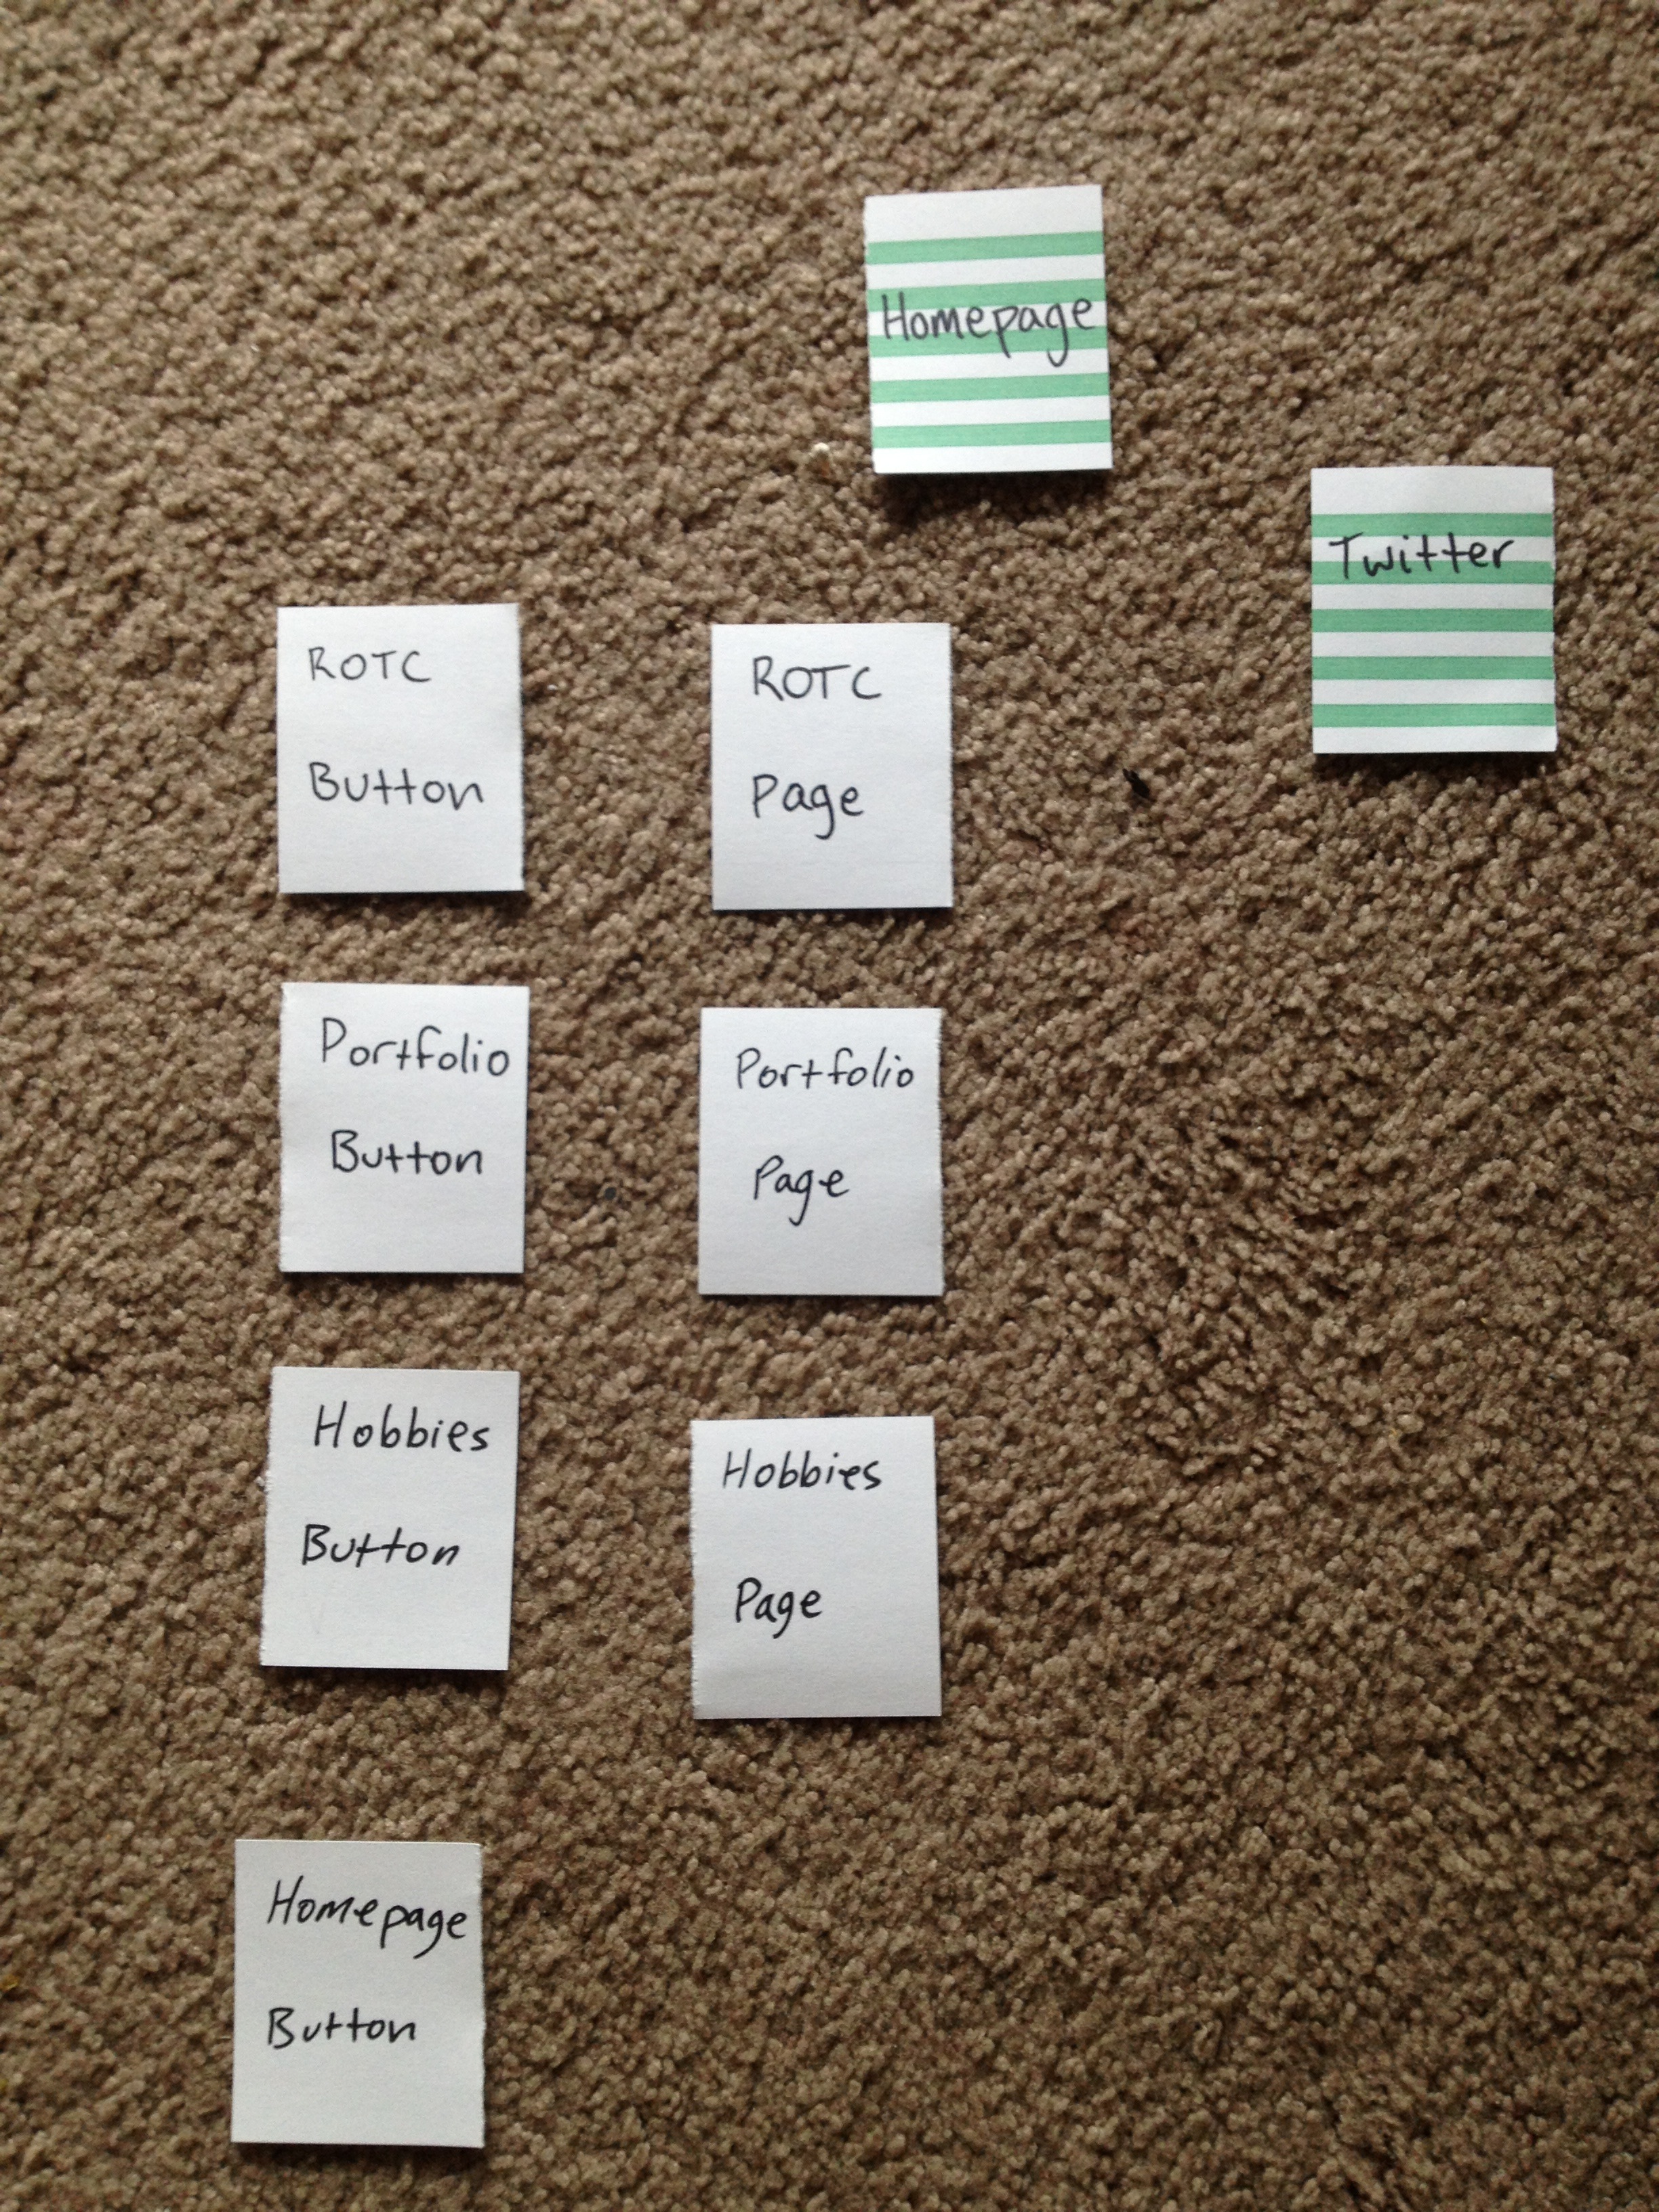 Homepage
Twitter
ROTC
Button
ROTC
Page
Portfolio
Button
Portfolio
Page
Hobbies
Button
Hobbies
Page
Homepage
Button